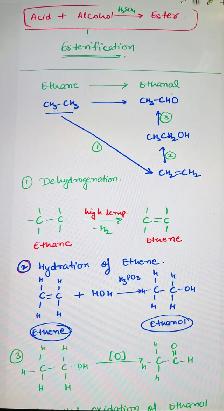 Acid + Alcohol H₂SO₄ → Ester.
Esterification
Ethane → Ethanal
CH₃-CH₃ → CH₃-CHO
③
CH₃CH₂OH
① ②
CH₂=CH₂
① Dehydrogenation.
-C-C- high temp - H₂ → C=C
Ethane Ethene
② Hydration of Ethene.
H H H₃PO₄ H H
C=C + HOH → H-C-C-OH
H H H H
Ethene Ethanol
③ H H H O
H-C-C-OH [O] → H-C-C-H
H H H
oxidation of ethanol